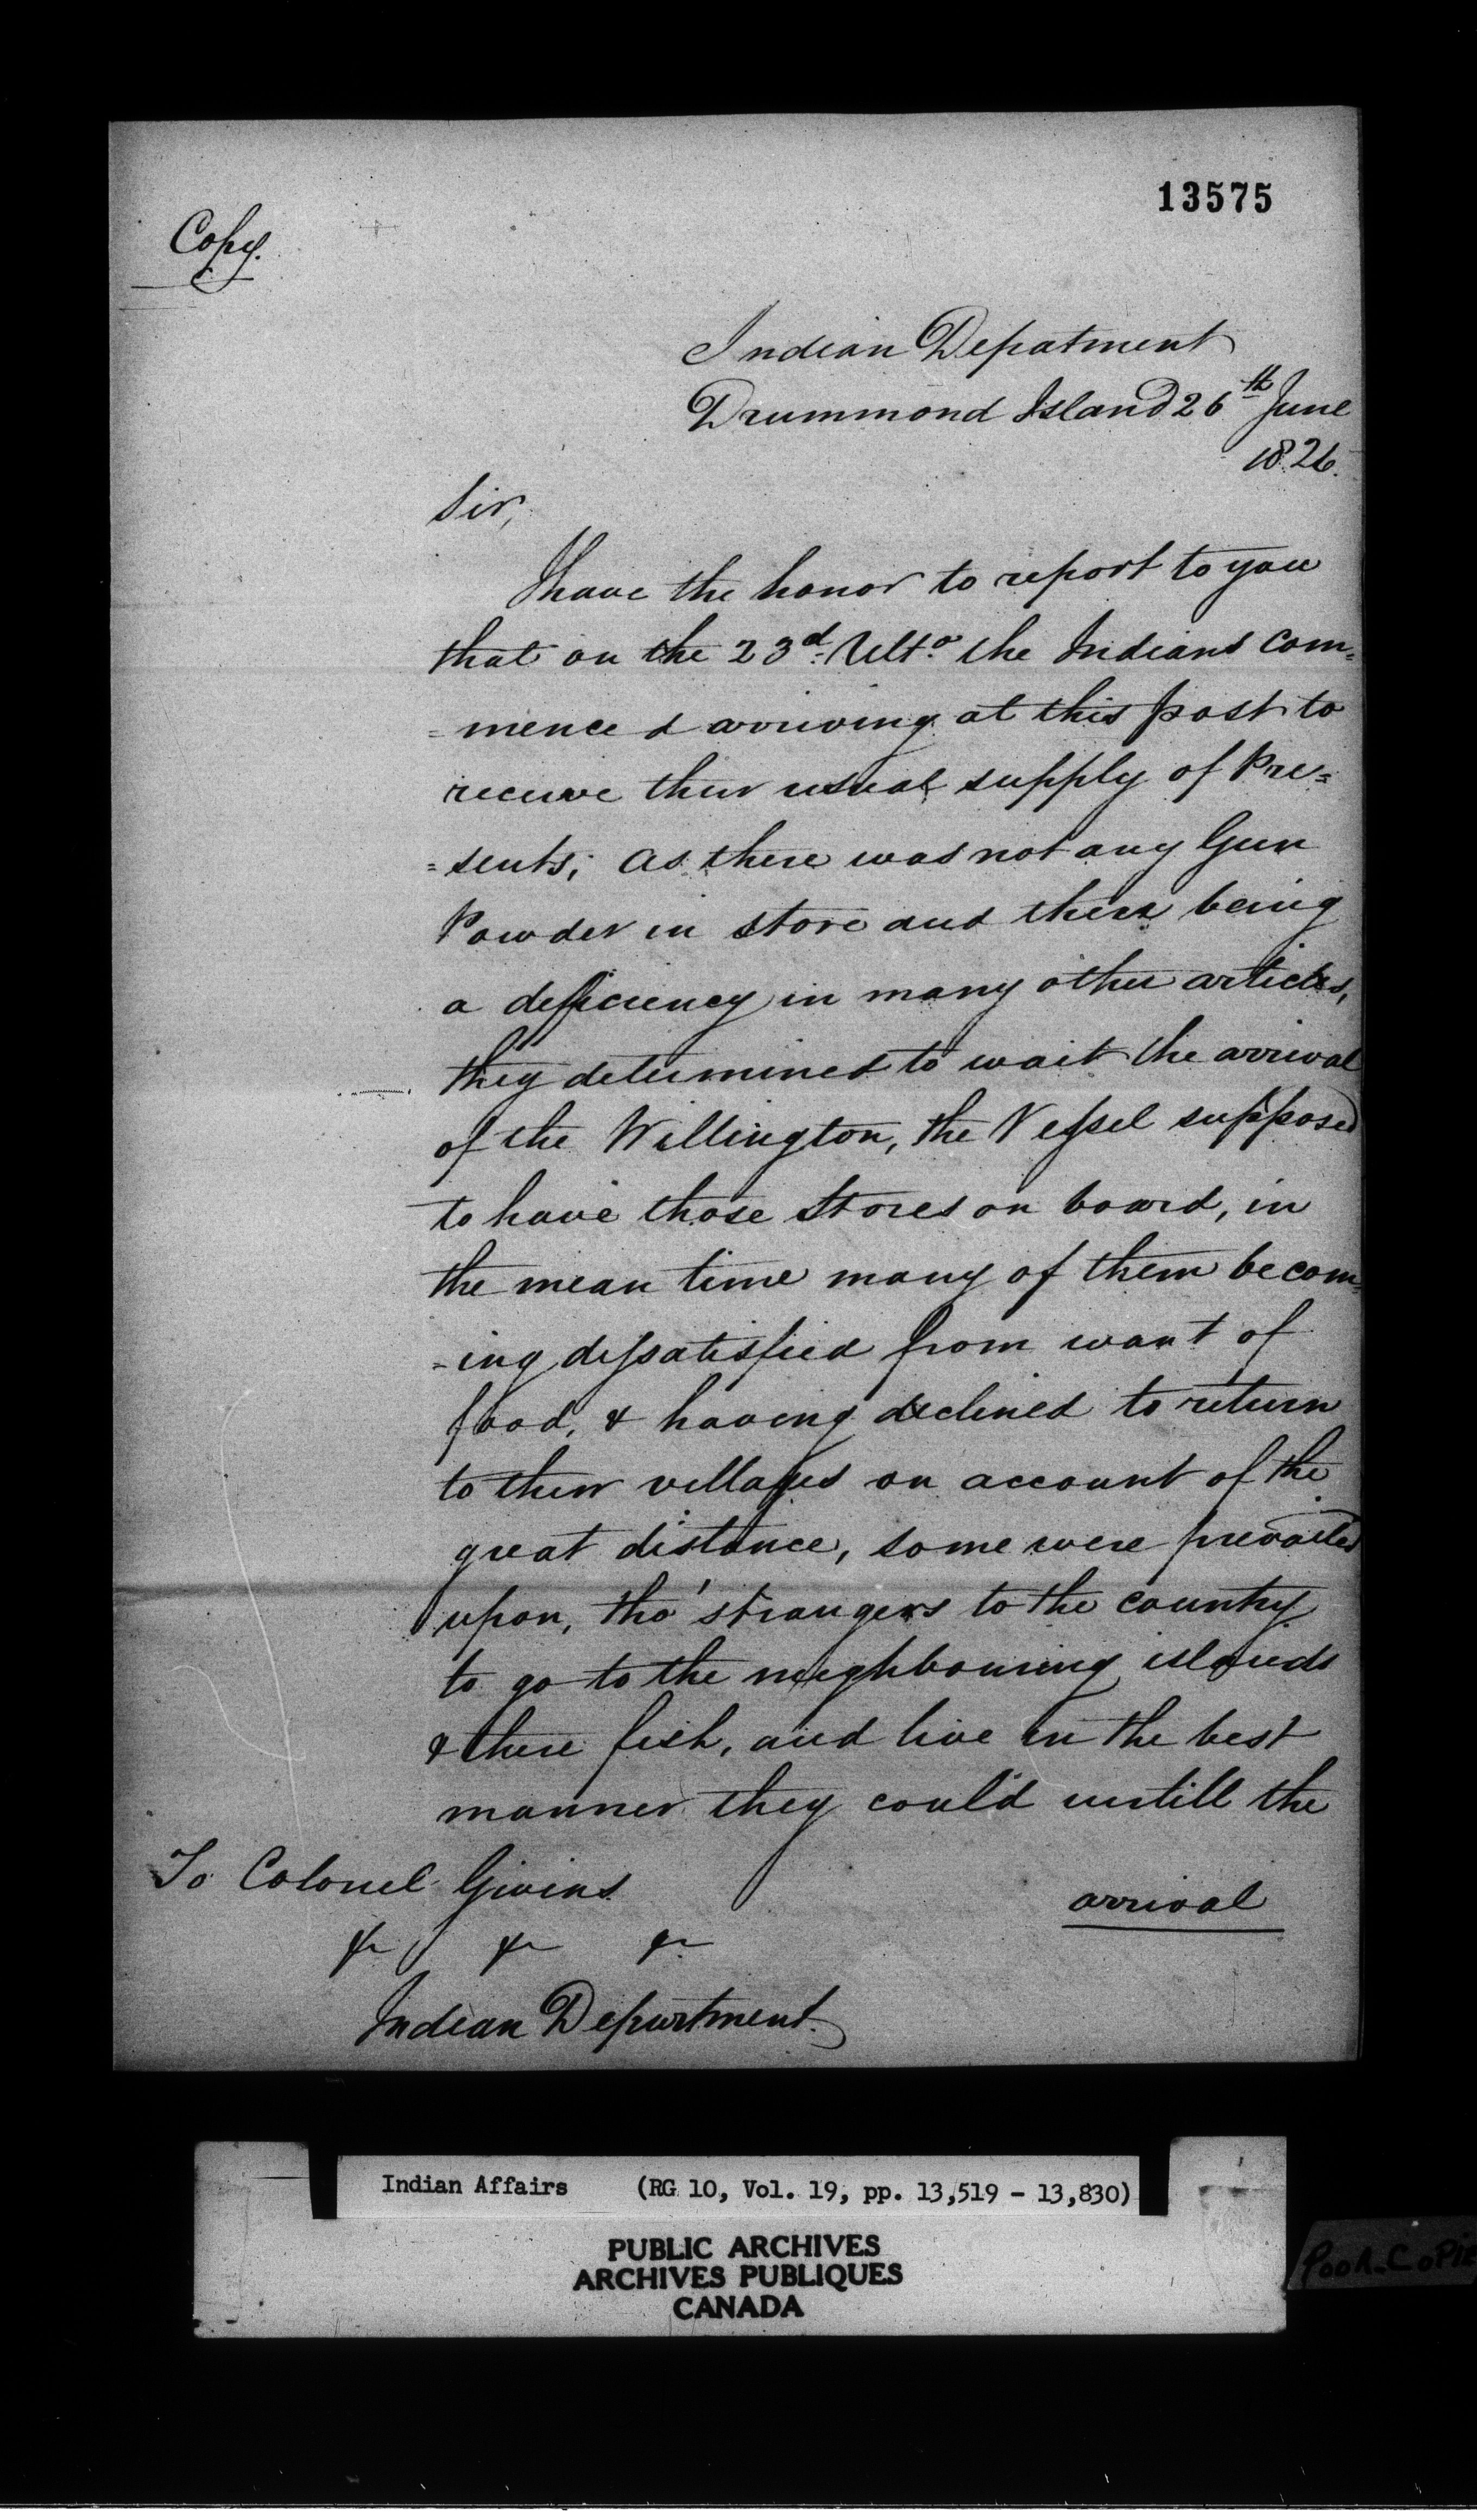 13575
Copy.
Indian Depatment
Drummond Island 26th June
1826.
Sir,
I have the honor to report to you
that on the 23d. Ulto. the Indians com=
=menced arriving at this post to
receive their usual supply of Pre=
=sents; as there was not any Gun
Powder in store and there being
a deficiency in many other articles,
they determined to wait the arrival
of the Willington, the Vessel supposed
to have those Stores on board, in
the mean time many of them becom=
-ing dissatisfied from want of
food, & having declined to return
to their villages on account of the
great distance, some were prevailed
upon, tho' strangers to the country
to go to the neighbouring islands
& there fish, and live in the best
manner they could untill the
arrival
To Colonel Givins
&c &c &c
Indian Department.
Indian Affairs (RG 10, Vol. 19, pp. 13,519 - 13,830)
PUBLIC ARCHIVES
ARCHIVES PUBLIQUES
CANADA